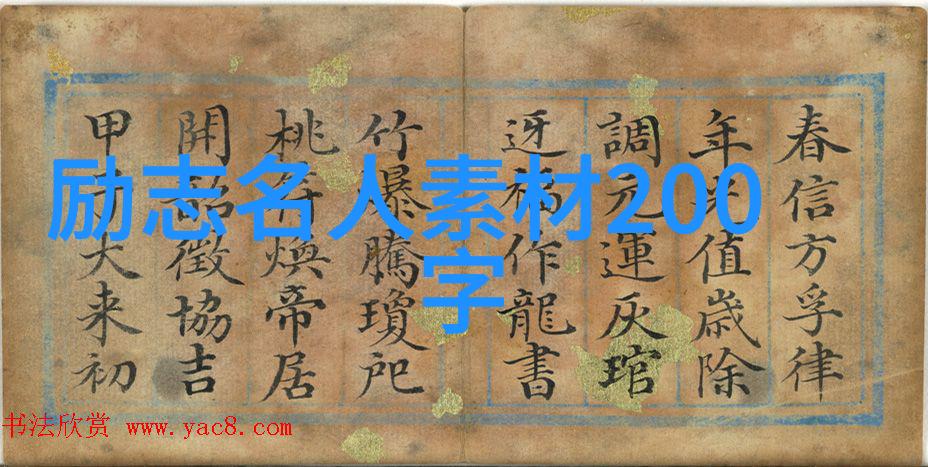 励志名人素材200
字
春信方孚律
年值歲除
調元運灰琯
迓福作龍書
竹爆騰瓊
桃符煥帝居
開韶徵協吉
甲大来初
书法欣赏 www.yac8.com